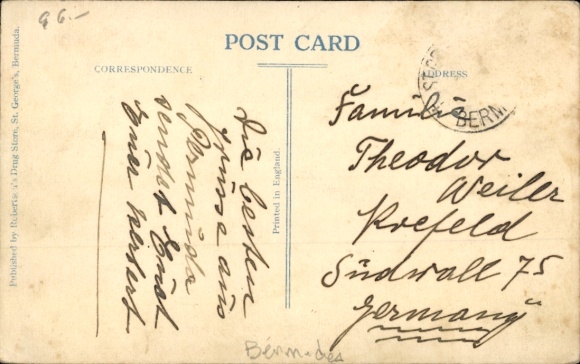 96.-
POST CARD
CORRESPONDENCE
ADDRESS
Published by Robertson's Drug Store, St. George's, Bermuda.
Printed in England.
Die besten
Grüsse aus
Bermuda
sendet Euch
Euer
BERM
Familie
Theodor
Weiler
Krefeld
Südwall 75
Germany
Bermudes